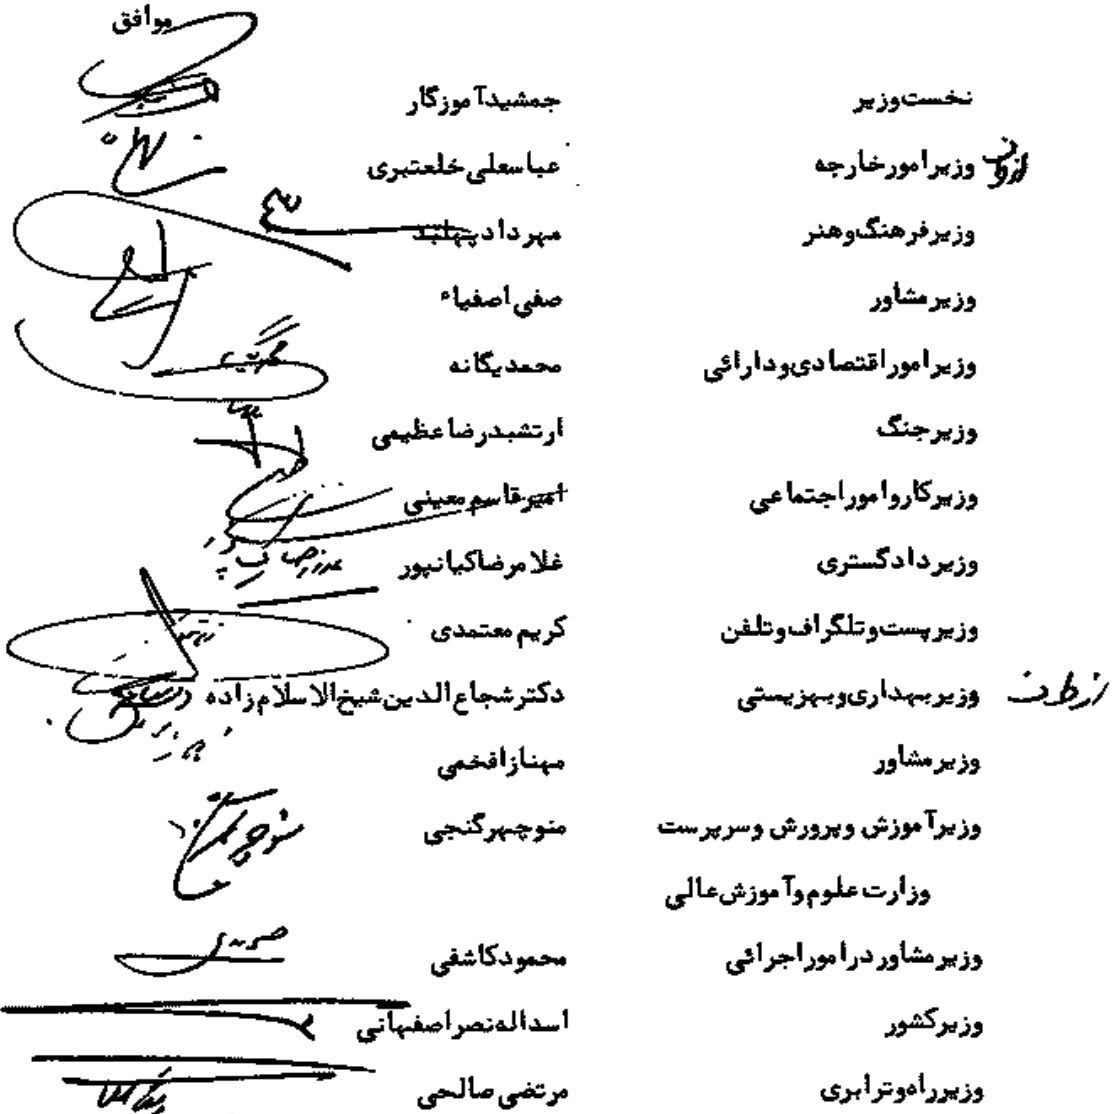 موافق
نخست‌وزیر جمشید آموزگار
از طرف وزیر امور خارجه عباسعلی خلعتبری
وزیر فرهنگ و هنر مهرداد پهلبد
وزیر مشاور صفی اصفیاء
وزیر امور اقتصادی و دارائی محمد یگانه
وزیر جنگ ارتشبد رضا عظیمی
وزیر کار و امور اجتماعی امیر قاسم معینی
وزیر دادگستری غلامرضا کیانپور
وزیر پست و تلگراف و تلفن کریم معتمدی
از طرف وزیر بهداری و بهزیستی دکتر شجاع الدین شیخ الاسلام زاده
وزیر مشاور مهناز افخمی
وزیر آموزش و پرورش و سرپرست منوچهر گنجی
وزارت علوم و آموزش عالی
وزیر مشاور در امور اجرائی محمود کاشفی
وزیر کشور اسداله نصر اصفهانی
وزیر راه و ترابری مرتضی صالحی